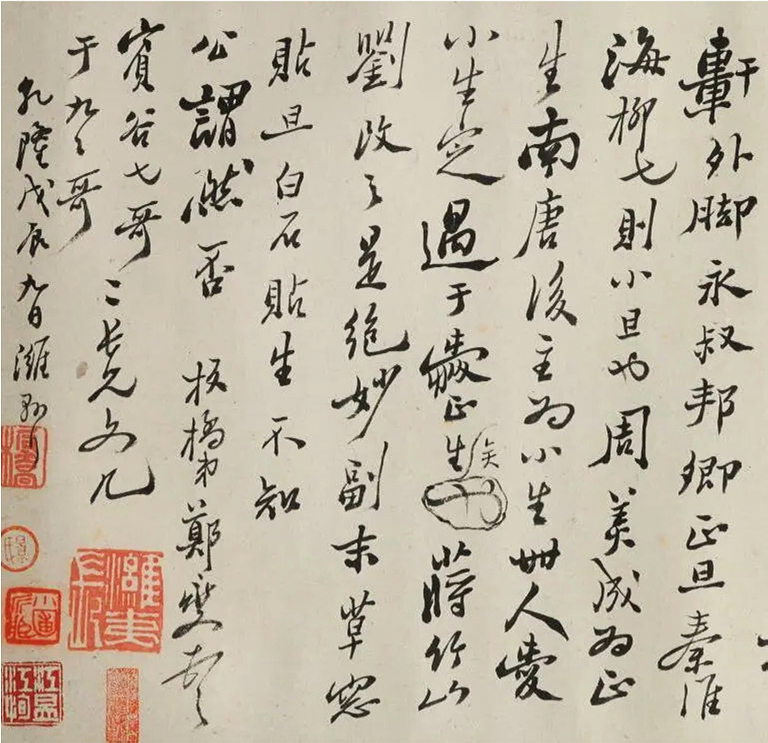 軒外脚永叔邦卿正旦秦淮
海柳七則小旦也周美成為正
生南唐後主為小生世人愛
小生定過于愛正生矣蔣竹山
劉改之是絕妙副末草窓
貼旦白石貼生不知
公謂然否 板橋弟鄭燮頓首
賓谷七哥
于九々哥
二長兄文几
乾隆戊辰九日濰縣
濰夷長